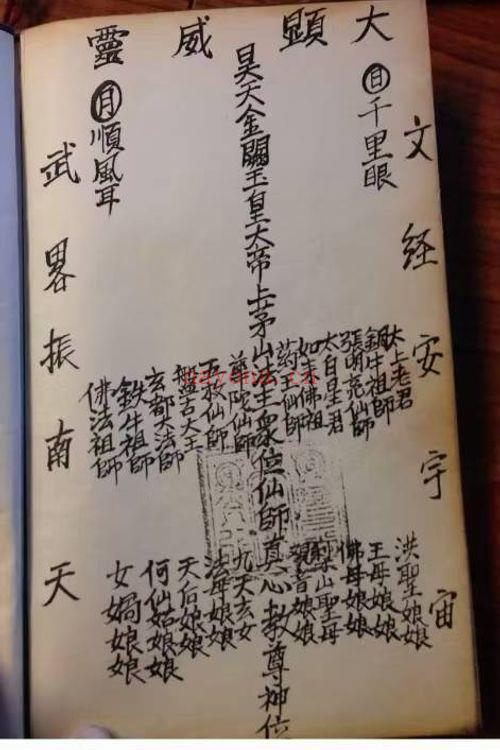 大顯威靈
文経安宇宙
日千里眼
太上老君
銅牛祖師
太白星君
如来佛祖
仙師
昊天金闕玉皇大帝上茅山法主眾位仙師真心教尊神位
仙師
仙師
盤古大王
玄都大法師
鉄牛祖師
佛法祖師
洪聖娘娘
王母娘娘
佛母娘娘
梨山聖母
觀音娘娘
九天玄女
法母娘娘
天后娘娘
何仙姑娘娘
女媧娘娘
月順風耳
武畧振南天
nayona.cn